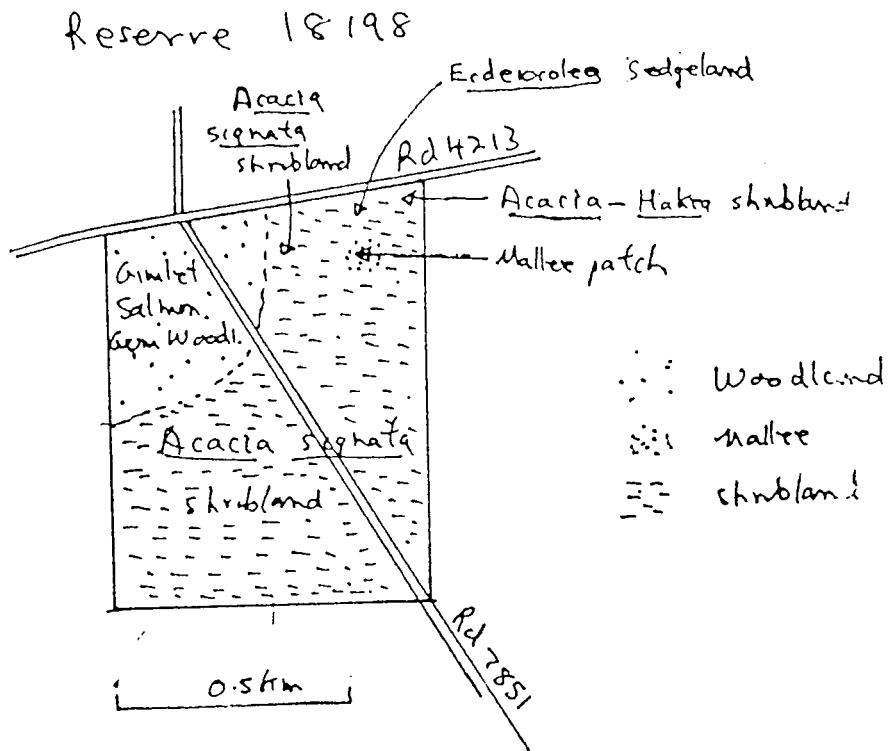 Reserve 18198
Ecdeiocolea Sedgeland
Acacia
signata
shrubland
Rd 4213
Acacia - Hakea shrubland
Mallee patch
Gimlet
Salmon
Gum Woodl.
Woodland
Mallee
shrubland
Acacia signata
shrubland
Rd 7851
0.5 Km